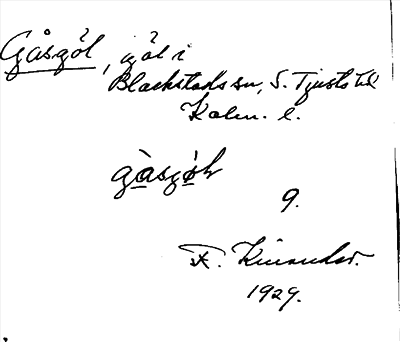 Gåsgöl, göl i
Blackstads sn, S. Tjusts hd
Kalm. l.
gàsgòl
9.
F. Kinander.
1929.